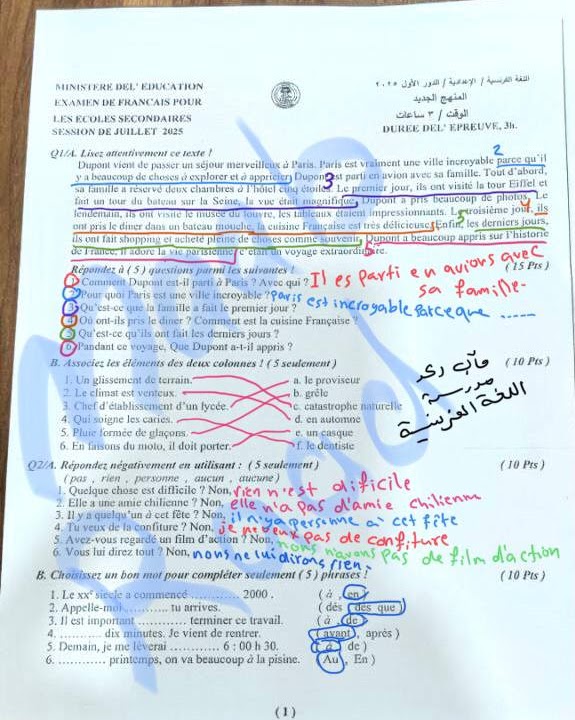 MINISTERE DEL' EDUCATION
EXAMEN DE FRANCAIS POUR
LES ECOLES SECONDAIRES
SESSION DE JUILLET 2025
اللغة الفرنسية / الإعدادية / الدور الأول ٢٠٢٥
المنهج الجديد
الوقت / ٣ ساعات
DUREE DEL' EPREUVE, 3h.
Q1/A. Lisez attentivement ce texte !
Dupont vient de passer un séjour merveilleux à Paris. Paris est vraiment une ville incroyable parce qu'il
y a beaucoup de choses à explorer et à apprécier. Dupont est parti en avion avec sa famille. Tout d'abord,
sa famille a réservé deux chambres à l'hôtel cinq étoiles. Le premier jour, ils ont visité la tour Eiffel et
fait un tour du bateau sur la Seine, la vue était magnifique. Dupont a pris beaucoup de photos. Le
lendemain, ils ont visité le musée du Louvre, les tableaux étaient impressionnants. Le troisième jour, ils
ont pris le diner dans un bateau mouche, la cuisine Française est très délicieuse. Enfin, les derniers jours,
ils ont fait shopping et acheté pleine de choses comme souvenir. Dupont a beaucoup appris sur l'histoire
de France, il adore la vie parisienne, c'était un voyage extraordinaire.
2
3
4
5
6
Répondez à ( 5 ) questions parmi les suivantes ! ( 15 Pts )
1. Comment Dupont est-il parti à Paris ? Avec qui ? Il es parti en avions avec
sa famille.
2. Pour quoi Paris est une ville incroyable ? Paris est incroyable parce que ......
3. Qu'est-ce que la famille a fait le premier jour ?
4. Où ont-ils pris le diner ? Comment est la cuisine Française ?
5. Qu'est-ce qu'ils ont fait les derniers jours ?
6. Pandant ce voyage, Que Dupont a-t-il appris ?
B. Associez les éléments des deux colonnes ! ( 5 seulement ) ( 10 Pts )
1. Un glissement de terrain. a. le proviseur
2. Le climat est venteux. b. grêle
3. Chef d'établissement d'un lycée. c. catastrophe naturelle
4. Qui soigne les caries. d. en automne
5. Pluie formée de glaçons. e. un casque
6. En faisons du moto, il doit porter. f. le dentiste
مدرسة
اللغة الفرنسية
Q2/A. Répondez négativement en utilisant : ( 5 seulement ) ( 10 Pts )
( pas , rien , personne , aucun , aucune )
1. Quelque chose est difficile ? Non, rien n'est dificile
2. Elle a une amie chilienne ? Non, elle n'a pas d'amie chilienn
3. Il y a quelqu'un à cet fête ? Non, il n'ya personne à cet fête
4. Tu veux de la confiture ? Non, je ne veux pas de confiture
5. Avez-vous regardé un film d'action ? Non, nous n'avons pas de film d'action
6. Vous lui direz tout ? Non, nous ne lui dirons rien.
B. Choisissez un bon mot pour compléter seulement ( 5 ) phrases ! ( 10 Pts )
1. Le xxᵉ siècle a commencé ............ 2000 . ( à , en )
2. Appelle-moi .......... tu arrives. ( dés , dés que )
3. Il est important ........... terminer ce travail. ( à , de )
4. ............ dix minutes. Je vient de rentrer. ( avant , après )
5. Demain, je me lèverai ............ 6 : 00 h 30. ( à , de )
6. ............ printemps, on va beaucoup à la pisine. ( Au , En )
( 1 )